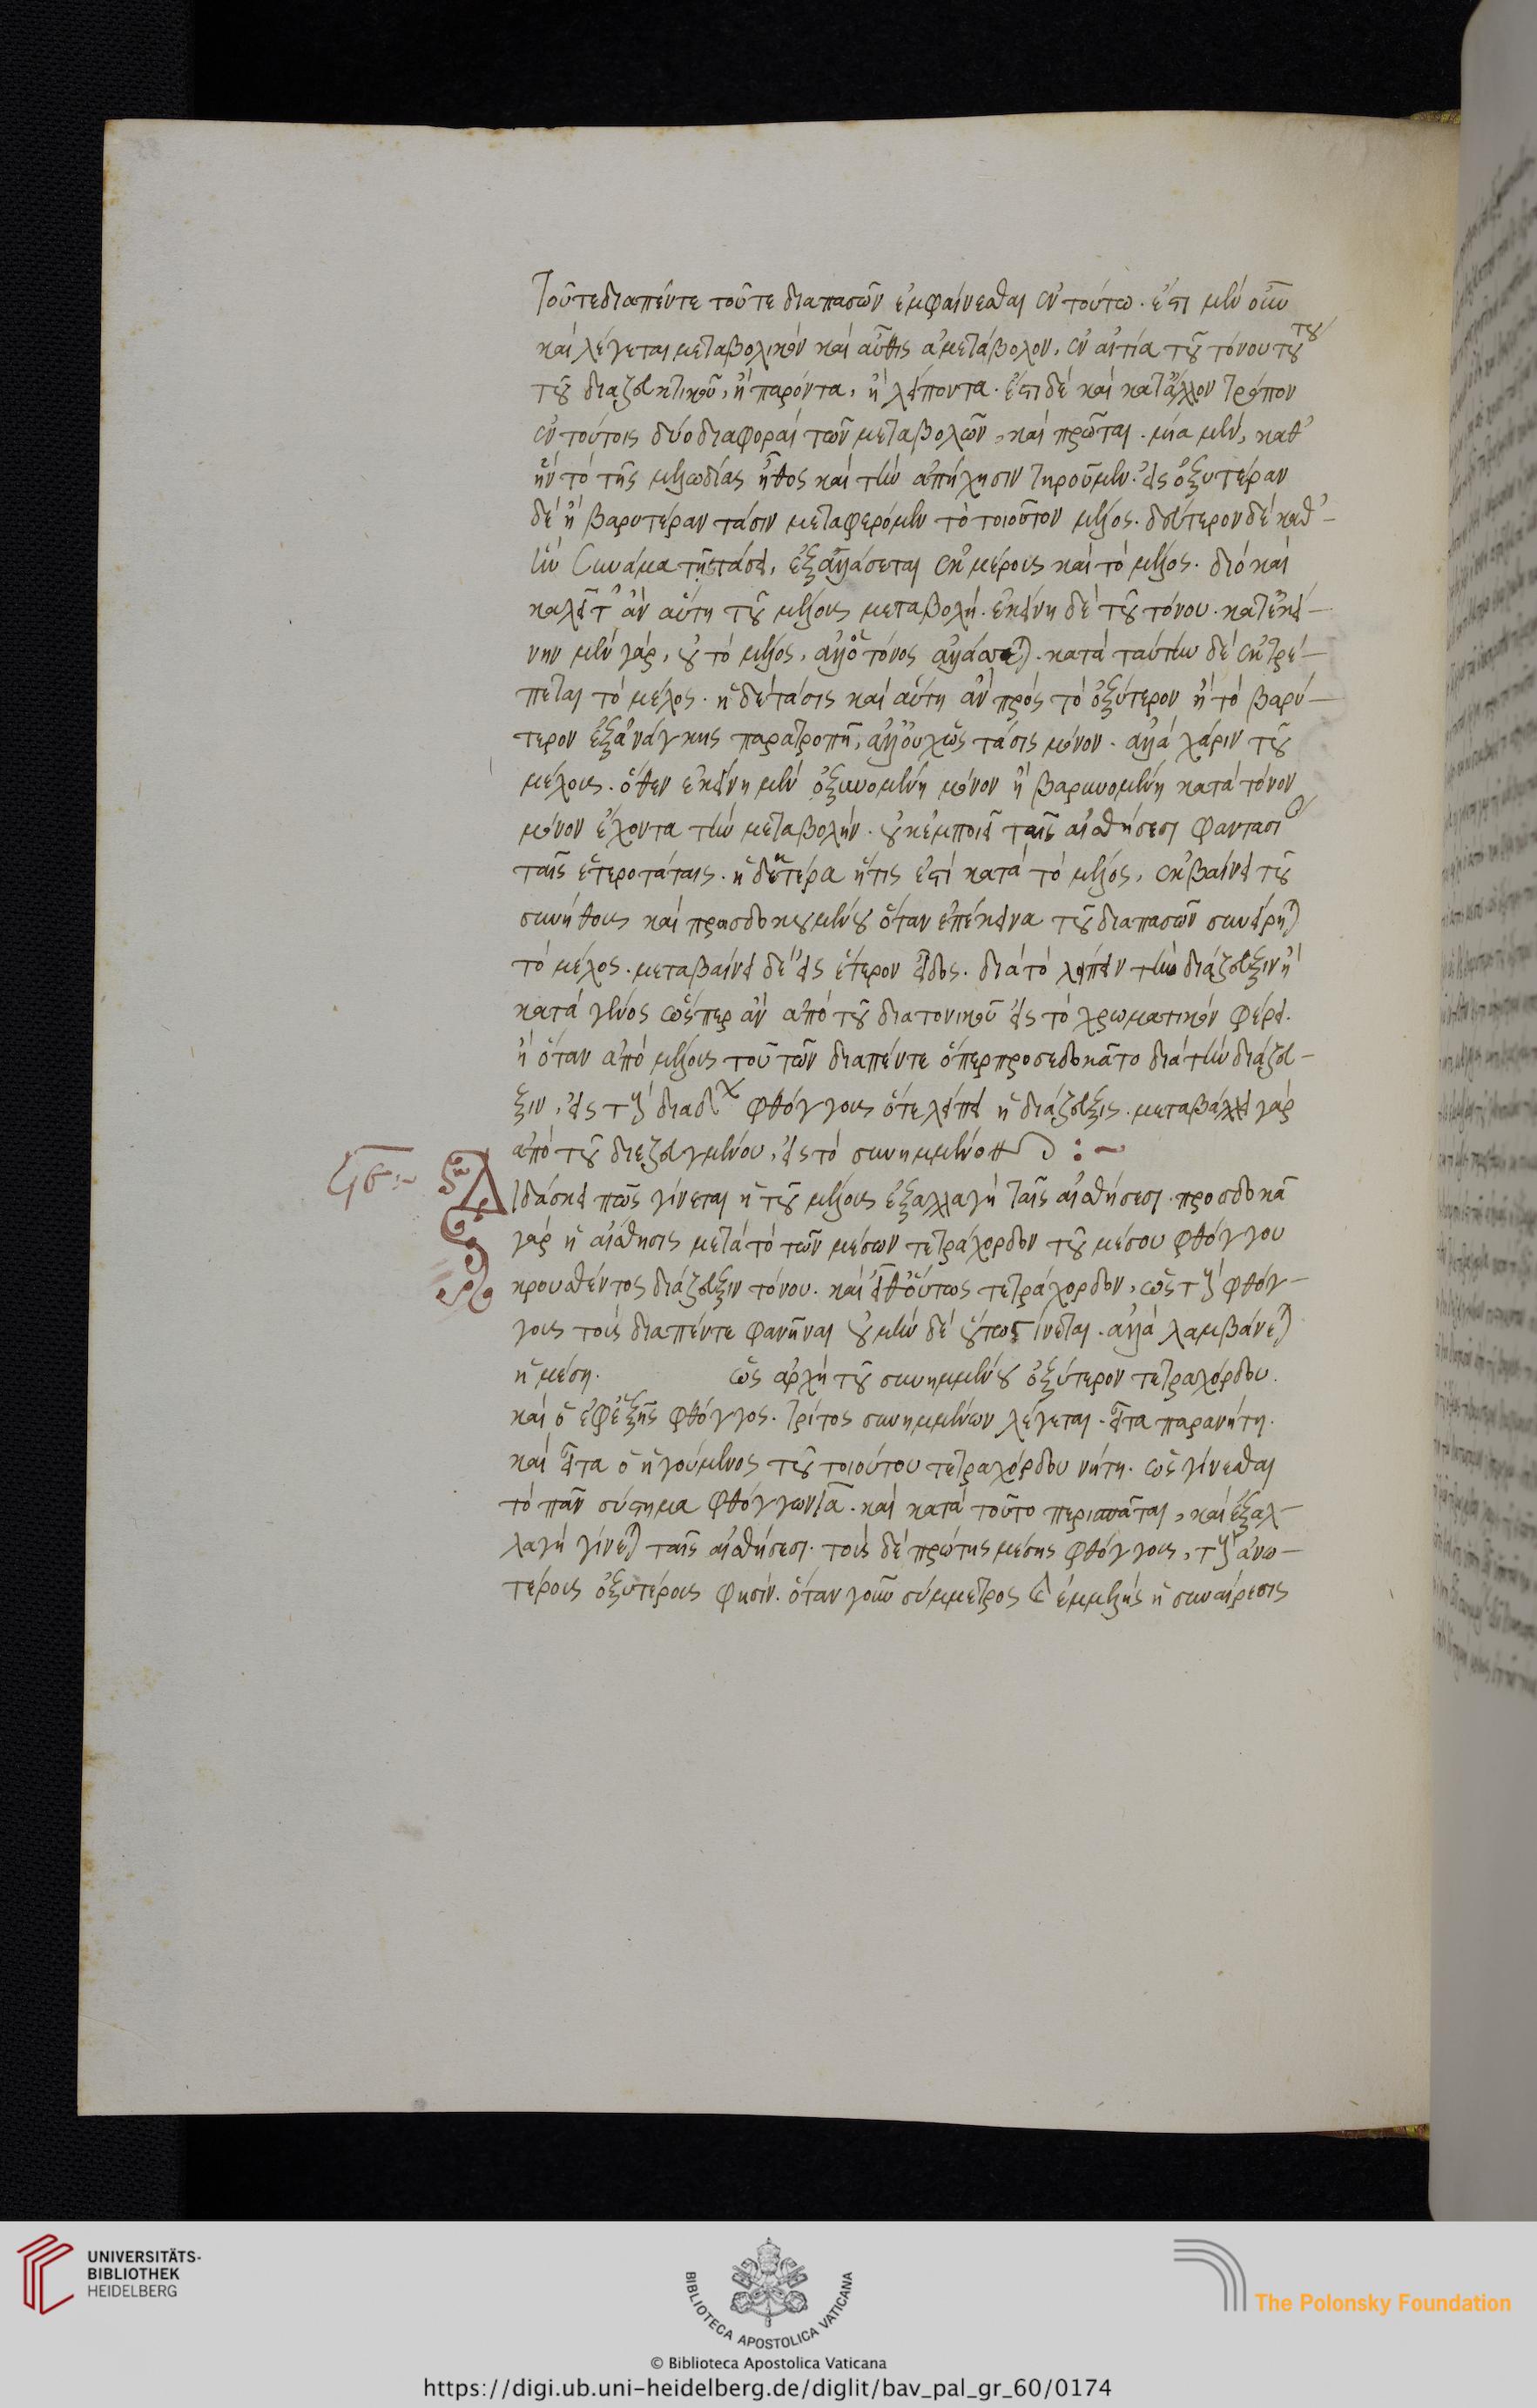 τοῦτε διαπέντε τοῦτε διαπασῶν ἐμφαίνεσθαι ἐν τούτω. ἔστι μὲν οὖν
καὶ λέγεται μεταβολικὸν καὶ αὖθις ἀμετάβολον, ἐν αἰτία τοῦ τόνου τοῦ
τοῦ διαζευκτικοῦ, ἢ παρόντα, ἢ λείποντα. ἔστι δὲ καὶ κατ' ἄλλον τρόπον
ἐν τούτοις δύο διαφοραὶ τῶν μεταβολῶν, καὶ πρῶται. μία μὲν, καθ'
ἣν τὸ τῆς μελωδίας ἦθος καὶ τὴν ἀπήχησιν τηροῦμεν. εἰς ὀξυτέραν
δὲ ἢ βαρυτέραν τάσιν μεταφερόμεν τὸ τοιοῦτον μέλος. δεύτερον δὲ καθ'-
ἣν συνάμα τῆ τάσει, ἐξαλλάσεται ἐκ μέρους καὶ τὸ μέλος. διὸ καὶ
καλεῖτ' ἂν αὕτη τοῦ μέλους μεταβολή. ἐκείνη δὲ τοῦ τόνου. κατ' ἐκεί-
νην μὲν γὰρ, οὐ τὸ μέλος, ἀλλ' ὁ τόνος κατὰ ταύτην δὲ ἐκτρέ-
πεται τὸ μέλος. ἡ δὲ τάσις καὶ αὕτη ἂν πρὸς τὸ ὀξύτερον ἢ τὸ βαρύ-
τερον ἐξ ἀνάγκης παρατροπῆ, ἀλλ' οὐχ ὡς τάσις μόνον. ἀλλὰ χάριν τοῦ
μέλους. ὅθεν ἐκείνη μὲν ὀξυνομένη μόνον ἢ βαρυνομένη κατὰ τόνον
μόνον ἔχοντα τὴν μεταβολήν. οὐκ ἐμποιεῖ ταῖς αἰσθήσεσι φαντασι
ταῖς ἑτεροτάταις. ἡ δευτέρα ἥτις ἐστὶ κατὰ τὸ μέλος, ἐκβαίνει τοῦ
συνήθους καὶ προσδοκουμένου ὅταν ἐπέκεινα τοῦ διαπασῶν συνείρηται
τὸ μέλος. μεταβαίνει δὲ εἰς ἕτερον εἶδος. διὰ τὸ λείπειν τὴν διάζευξιν ἢ
κατὰ γένος ὥσπερ ἂν ἀπὸ τοῦ διατονικοῦ εἰς τὸ χρωματικὸν φέρει.
ἢ ὅταν ἀπὸ μέλους τοῦ τῶν διαπέντε ὅπερ προσεδοκᾶτο διὰ τὴν διάζευ-
ξιν, εἰς τοὺς διαδ φθόγγους ὅτε λείπει ἡ διάζευξις. μεταβάλλει γὰρ
ἀπὸ τοῦ διεζευγμένου, εἰς τὸ συνημμένον :~
Διδάσκει πῶς γίνεται ἡ τοῦ μέλους ἐξαλλαγὴ ταῖς αἰσθήσεσι. προσδοκᾶ
γὰρ ἡ αἴσθησις μετὰ τὸ τῶν μέσων τετράχορδον τοῦ μέσου φθόγγου
κρουσθέντος διάζευξιν τόνου. καὶ εἶθ' οὕτως τετράχορδον, ὡς τοὺς φθόγ-
γους τοὺς διαπέντε φανῆναι οὐ μὴν δὲ οὕτως γίνεται. ἀλλὰ λαμβάνεται
ἡ μέση. ὡς ἀρχὴ τοῦ συνημμένου ὀξύτερον τετραχόρδου.
καὶ ὁ ἐφεξῆς φθόγγος. τρίτος συνημμένων λέγεται. εἶτα παρανήτη.
καὶ εἶτα ὁ ἡγούμενος τοῦ τοιούτου τετραχόρδου νήτη. ὡς γίνεσθαι
τὸ πᾶν σύστημα φθόγγων ια. καὶ κατὰ τοῦτο περισπᾶται, καὶ ἐξαλ-
λαγὴ γίνεται ταῖς αἰσθήσεσι. τοὺς δὲ πρώτης μέσης φθόγγους, τοὺς ἀνω-
τέρους ὀξυτέρους φησίν. ὅταν γοῦν σύμμετρος καὶ ἐμμελὴς ἡ συναίρεσις
UNIVERSITÄTS-
BIBLIOTHEK
HEIDELBERG
BIBLIOTECA APOSTOLICA VATICANA
The Polonsky Foundation
© Biblioteca Apostolica Vaticana
https://digi.ub.uni-heidelberg.de/diglit/bav_pal_gr_60/0174